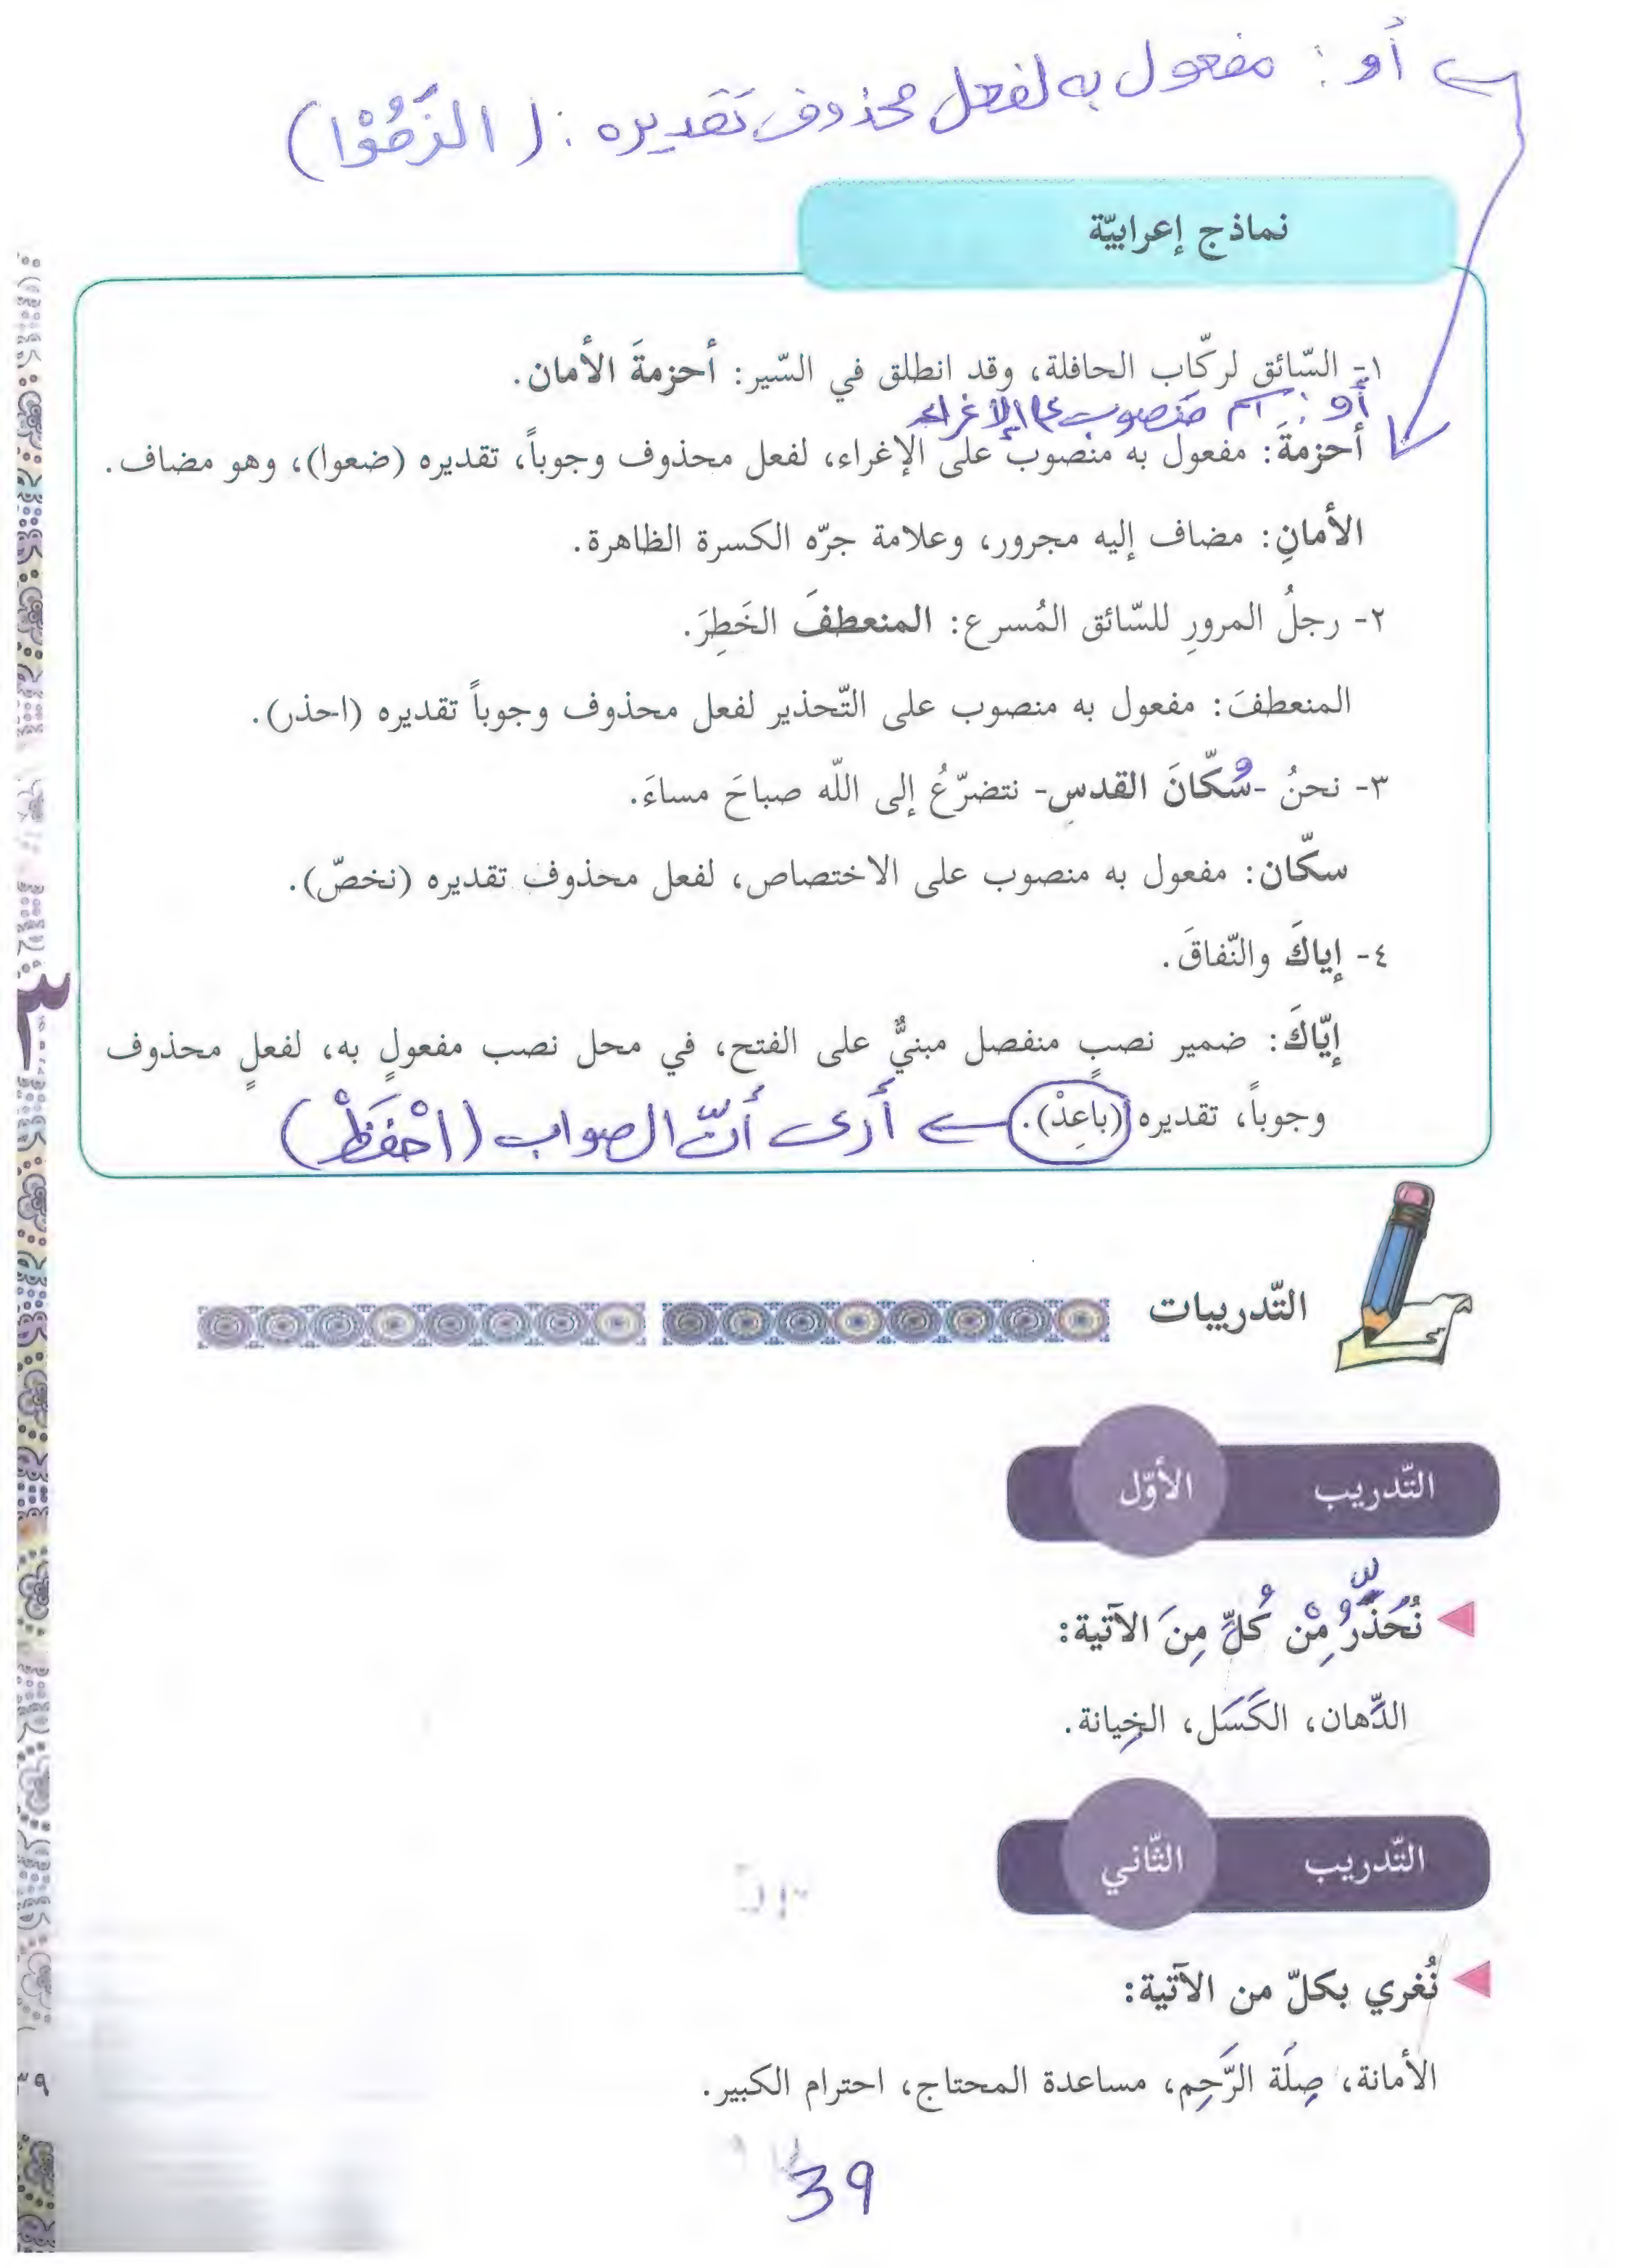 أو: مفعول به لفعل محذوف تقديره: (الزَمُوْا)
نماذج إعرابيّة
١- السّائق لركّاب الحافلة، وقد انطلق في السّير: أحزمةَ الأمان.
أو: اسم منصوب على الإغراء
أحزمةَ: مفعول به منصوب على الإغراء، لفعل محذوف وجوباً، تقديره (ضعوا)، وهو مضاف.
الأمانِ: مضاف إليه مجرور، وعلامة جرّه الكسرة الظاهرة.
٢- رجلُ المرورِ للسّائق المُسرع: المنعطفَ الخَطِرَ.
المنعطفَ: مفعول به منصوب على التّحذير لفعل محذوف وجوباً تقديره (احذر).
٣- نحنُ -سُكّانَ القدسِ- نتضرّعُ إلى اللّه صباحَ مساءَ.
سكّان: مفعول به منصوب على الاختصاص، لفعل محذوف تقديره (نخصّ).
٤- إياكَ والنّفاقَ.
إيّاكَ: ضمير نصبٍ منفصل مبنيٌّ على الفتح، في محل نصب مفعولٍ به، لفعلٍ محذوف
وجوباً، تقديره (باعِدْ). أَرى أنّ الصواب (احْفَظْ)
التّدريبات
التّدريب الأوّل
نُحَذِّرُ مِنْ كُلٍّ مِنَ الآتية:
الدَّهان، الكَسَل، الخِيانة.
التّدريب الثّاني
نُغري بكلّ من الآتية:
الأمانة، صِلَة الرَّحِم، مساعدة المحتاج، احترام الكبير.
٣٩
39